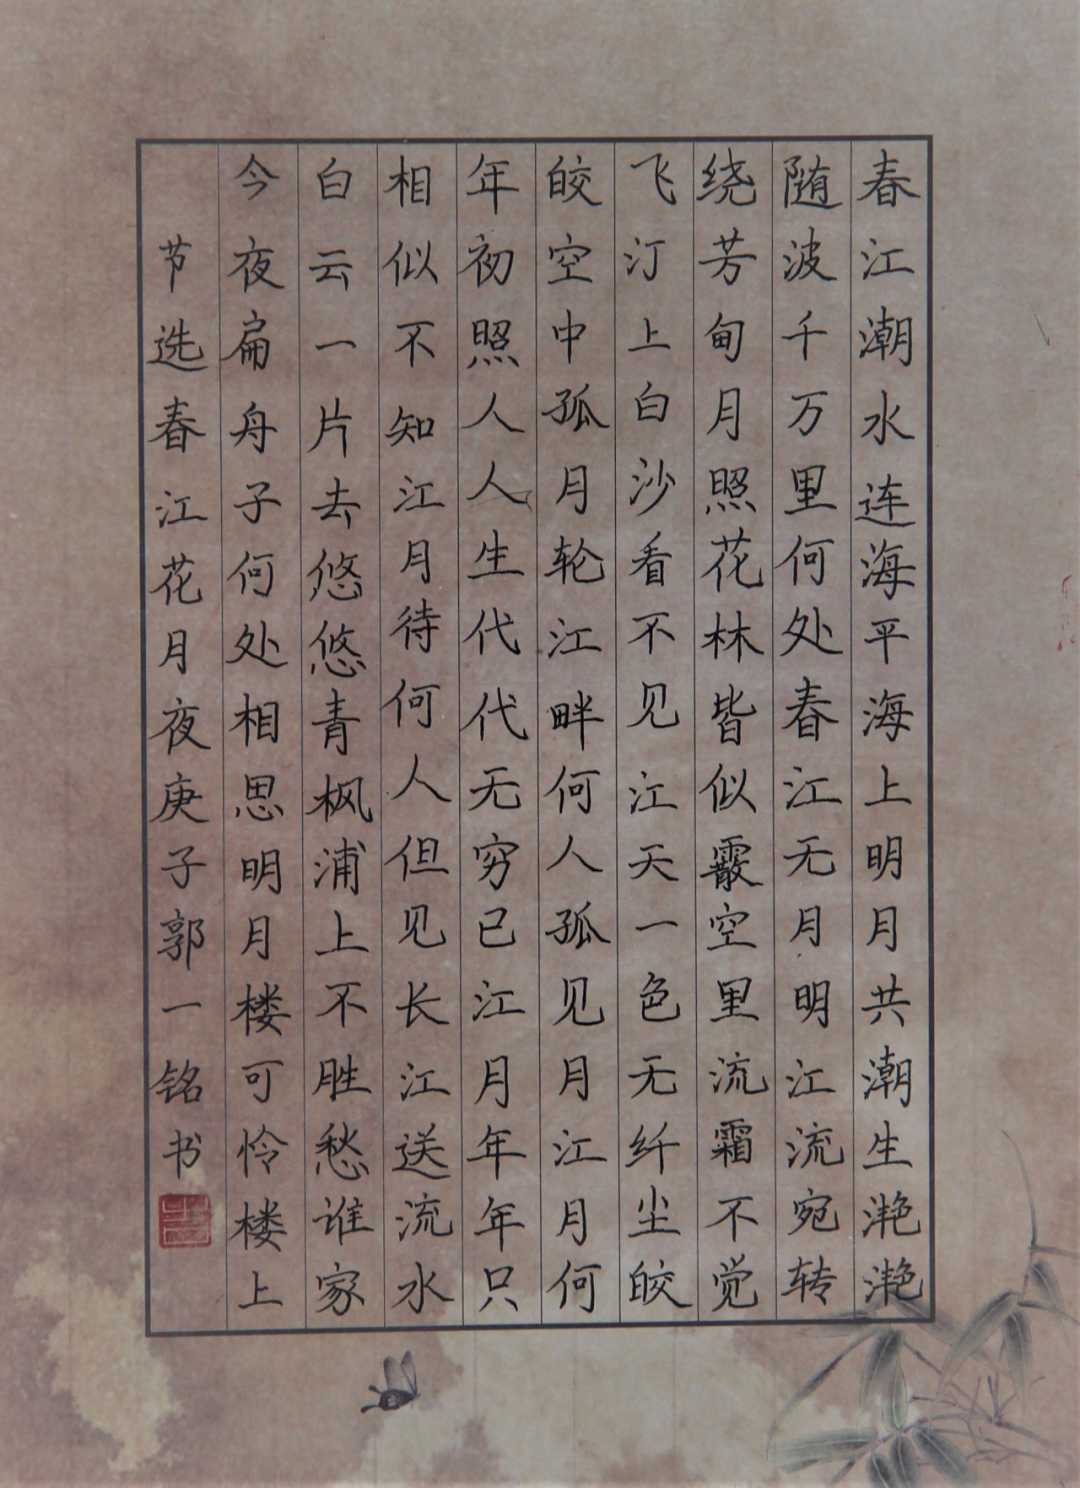 春江潮水连海平海上明月共潮生滟滟
随波千万里何处春江无月明江流宛转
绕芳甸月照花林皆似霰空里流霜不觉
飞汀上白沙看不见江天一色无纤尘皎
皎空中孤月轮江畔何人孤见月江月何
年初照人人生代代无穷已江月年年只
相似不知江月待何人但见长江送流水
白云一片去悠悠青枫浦上不胜愁谁家
今夜扁舟子何处相思明月楼可怜楼上
节选春江花月夜庚子郭一铭书